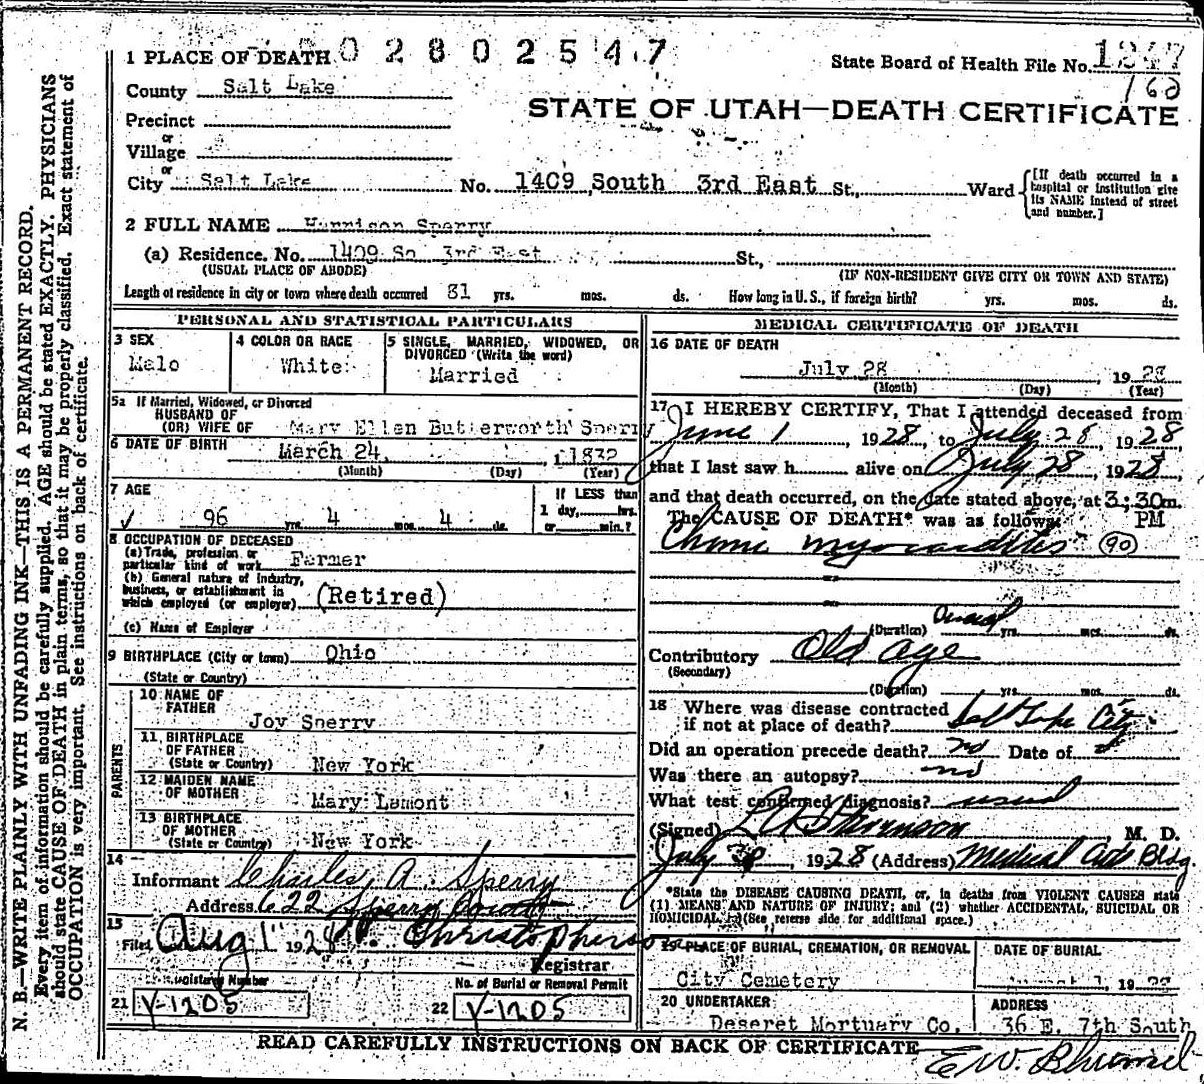 1 PLACE OF DEATH 02802547
State Board of Health File No. 1247
160
County Salt Lake
STATE OF UTAH—DEATH CERTIFICATE
Precinct
or
Village
or
City Salt Lake No. 1409 South 3rd East St., Ward
[If death occurred in a
hospital or institution give
its NAME instead of street
and number.]
2 FULL NAME Harrison Sperry
(a) Residence. No. 1409 So 3rd East St.,
(USUAL PLACE OF ABODE) (IF NON-RESIDENT GIVE CITY OR TOWN AND STATE)
Length of residence in city or town where death occurred 81 yrs. mos. ds. How long in U.S., if foreign birth? yrs. mos. ds.
PERSONAL AND STATISTICAL PARTICULARS
3 SEX
Male
4 COLOR OR RACE
White
5 SINGLE, MARRIED, WIDOWED, OR
DIVORCED (Write the word)
Married
5a If Married, Widowed, or Divorced
HUSBAND OF
(OR) WIFE OF Mary Ellen Butterworth Sperry
6 DATE OF BIRTH March 24, 1832
(Month) (Day) (Year)
7 AGE
96 yrs. 4 mos. 4 ds.
If LESS than
1 day, hrs.
or min.?
8 OCCUPATION OF DECEASED
(a) Trade, profession or
particular kind of work Farmer
(b) General nature of Industry,
business, or establishment in
which employed (or employer) (Retired)
(c) Name of Employer
9 BIRTHPLACE (City or town) Ohio
(State or Country)
PARENTS
10 NAME OF
FATHER
Joy Sperry
11 BIRTHPLACE
OF FATHER
(State or Country) New York
12 MAIDEN NAME
OF MOTHER
Mary Lamont
13 BIRTHPLACE
OF MOTHER
(State or Country) New York
14
Informant Charles A. Sperry
Address 622 Sperry Court
15
Filed Aug 1 1928 Christopherson
Registrar
Registered Number
21 Y-1205
No. of Burial or Removal Permit
22 Y-1205
MEDICAL CERTIFICATE OF DEATH
16 DATE OF DEATH
July 28, 1928
(Month) (Day) (Year)
17 I HEREBY CERTIFY, That I attended deceased from
June 1, 1928, to July 28, 1928
that I last saw h alive on July 28, 1928,
and that death occurred, on the date stated above, at 3:30m.
The CAUSE OF DEATH* was as follows: PM
Chronic myocarditis 90
(Duration) several yrs. mos. ds.
Contributory Old age
(Secondary)
(Duration) yrs. mos. ds.
18 Where was disease contracted
if not at place of death? Salt Lake City
Did an operation precede death? no Date of
Was there an autopsy? no
What test confirmed diagnosis? usual
(Signed) L A Stevenson M. D.
July 30, 1928 (Address) Medical Arts Bldg.
*State the DISEASE CAUSING DEATH, or, in deaths from VIOLENT CAUSES state
(1) MEANS AND NATURE OF INJURY; and (2) whether ACCIDENTAL, SUICIDAL OR
HOMICIDAL. (See reverse side for additional space.)
19 PLACE OF BURIAL, CREMATION, OR REMOVAL
City Cemetery
DATE OF BURIAL
August 1, 1928
20 UNDERTAKER
Deseret Mortuary Co.
ADDRESS
36 E. 7th South
READ CAREFULLY INSTRUCTIONS ON BACK OF CERTIFICATE
N. B.—WRITE PLAINLY WITH UNFADING INK—THIS IS A PERMANENT RECORD.
Every item of information should be carefully supplied. AGE should be stated EXACTLY. PHYSICIANS
should state CAUSE OF DEATH in plain terms, so that it may be properly classified. Exact statement of
OCCUPATION is very important. See instructions on back of certificate.